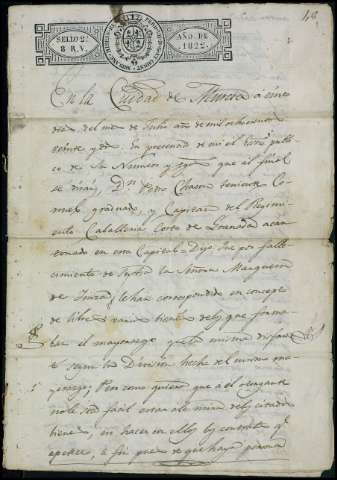 SELLO 2º
8 R.V.
AÑO DE
1822.
En la Ciudad de Murcia a cinco
dias del mes de Julio año de mil ochocientos
veinte y dos: en presencia de mi el
co de su Numero y que al final
se diran, Dn Pedro Chacon teniente Co-
ronel graduado, y Capitan del Regimi-
ento Caballeria Costa de Granada acan-
tonado en esta Capital = Dijo: Que por falle-
cimiento de su la Señora Marquesa
de le han correspondido en concepto
de libre varias tierras delas que forma-
ban el mayorazgo que la misma disfru-
to segun la Division hecha del mismo ma-
yorazgo; Pero como quiera que a el otorgante
no le sea facil estar ala mira delas citadas
tierras, en hacer en ellas los contratos qe
apetece, a fin pues de que haya persona